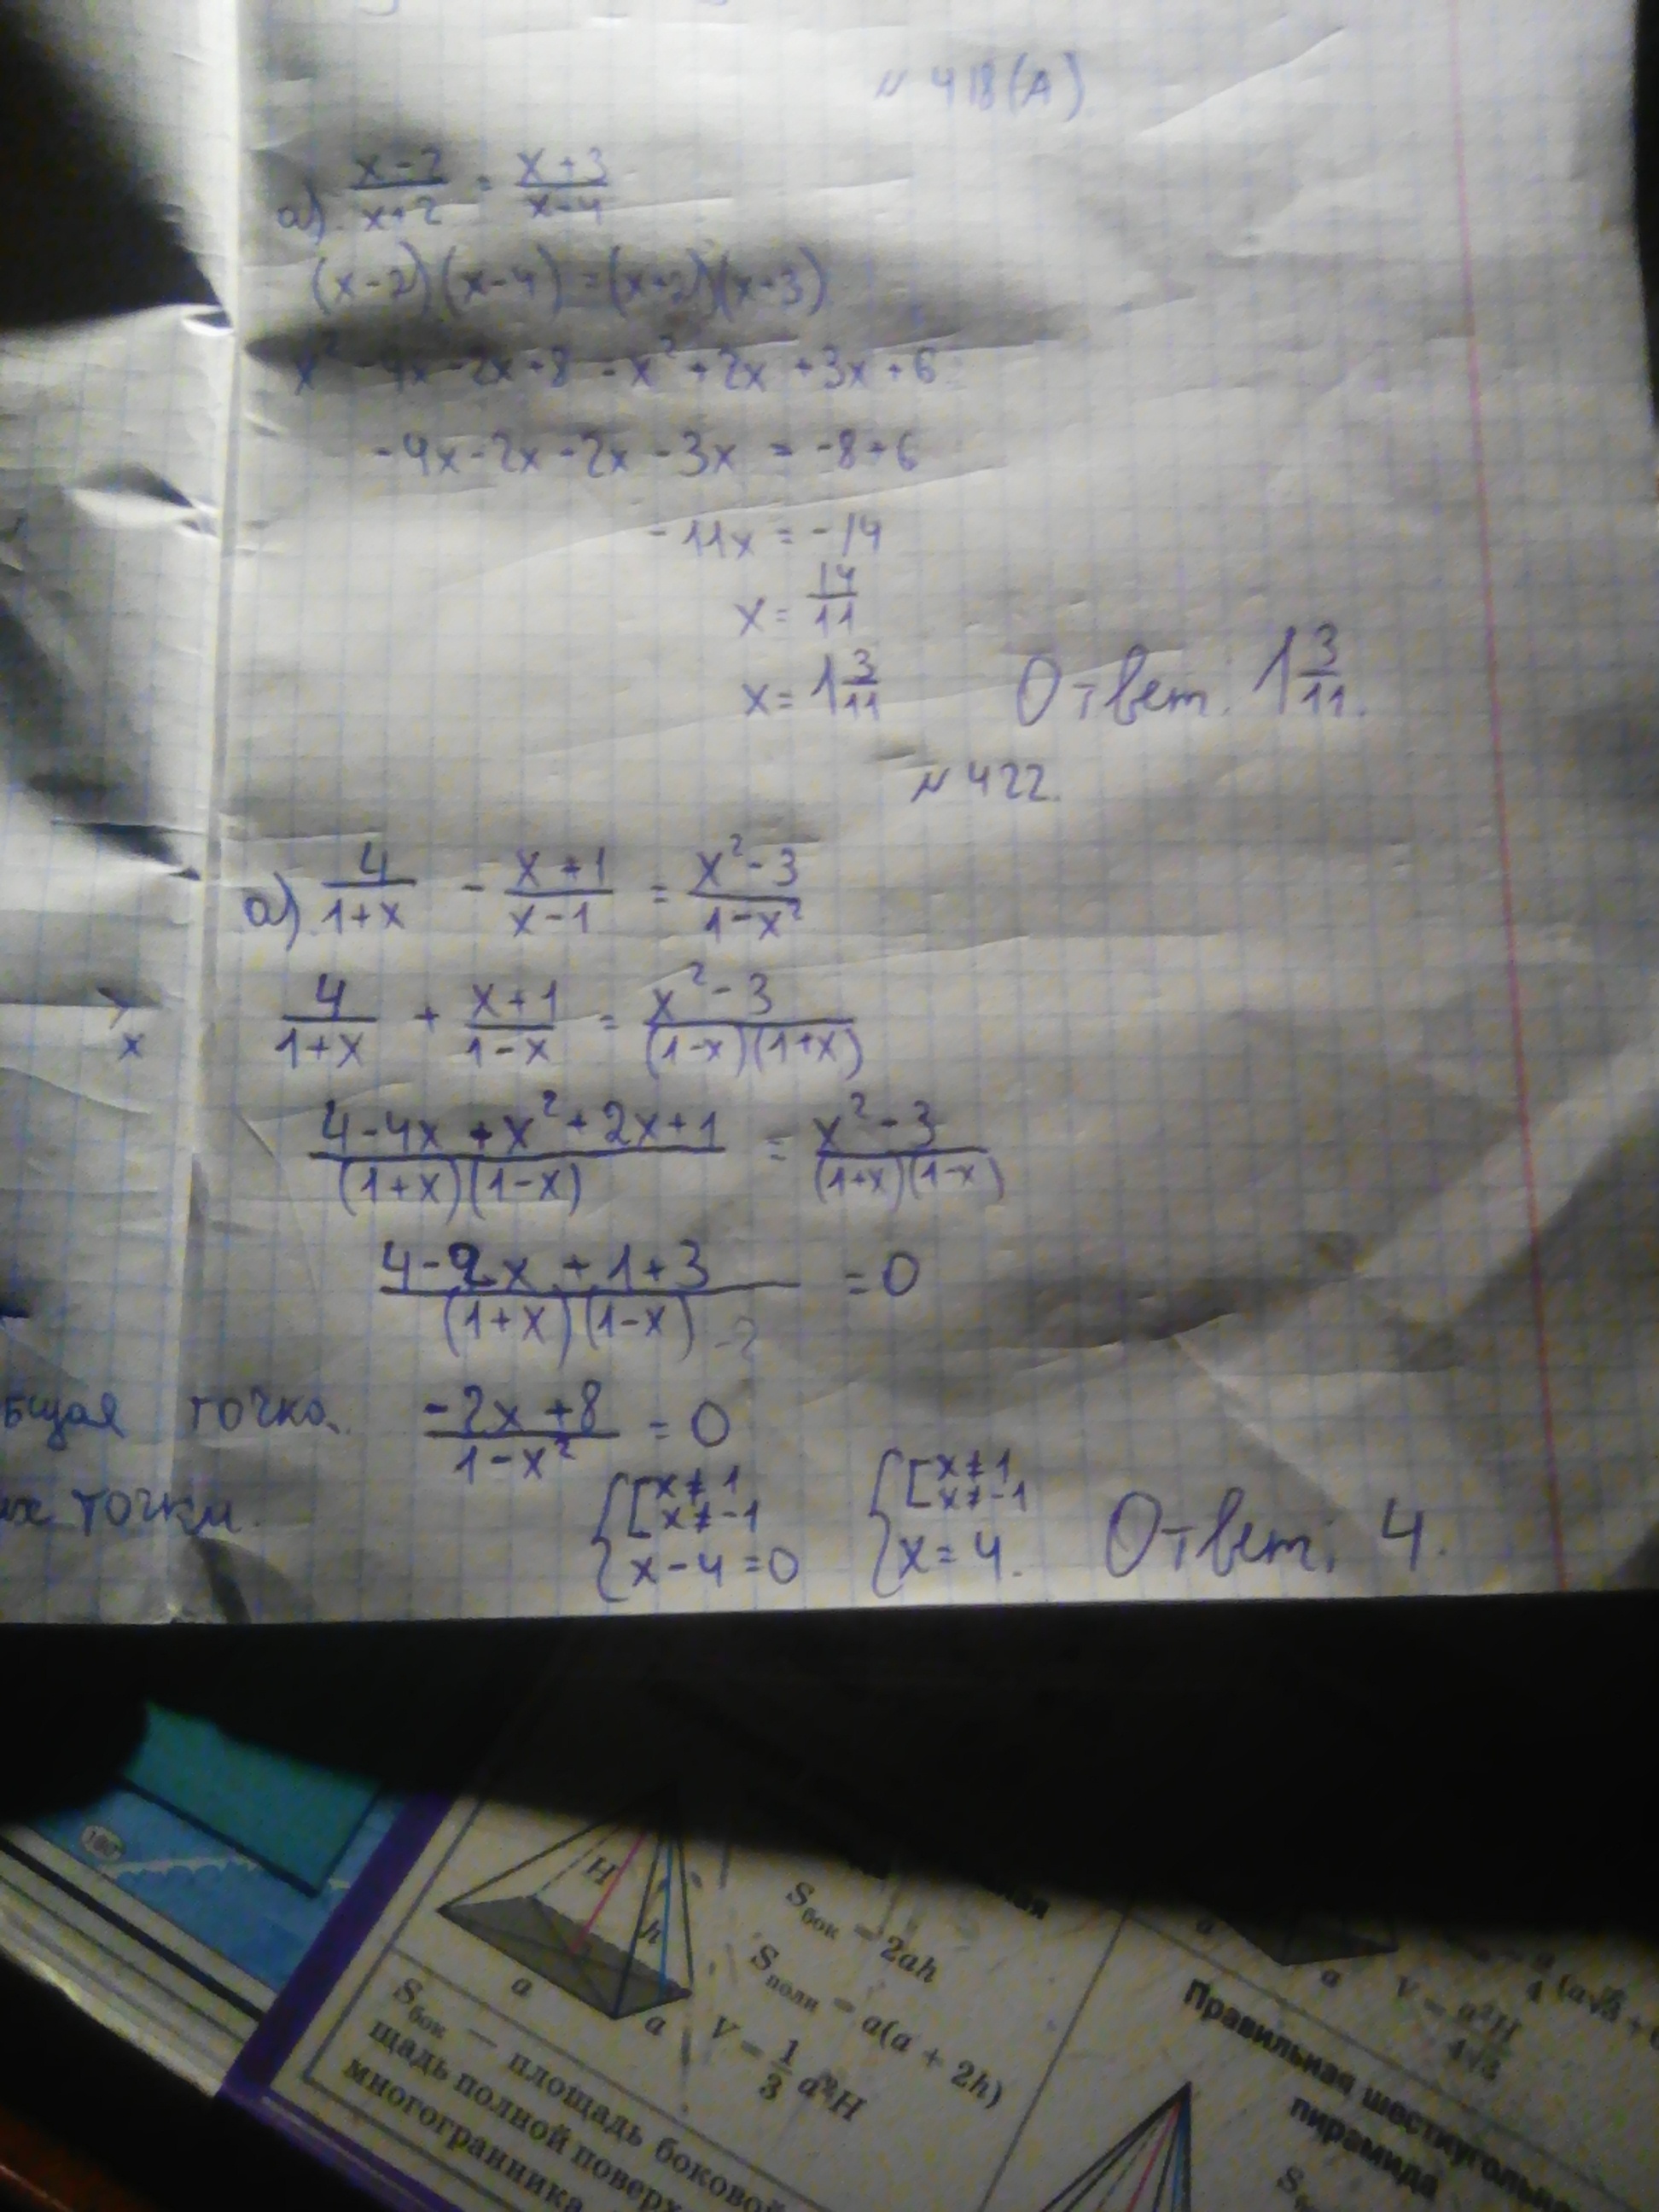 № 418(А)
а) (x-2)/(x+2) = (x+3)/(x-4)
(x-2)(x-4) = (x+2)(x+3)
x² -4x-2x+8 = x² +2x +3x +6
-4x-2x-2x-3x = -8+6
-11x = -14
x = 14/11
x = 1 3/11 Ответ: 1 3/11.
№ 422.
а) 4/(1+x) - (x+1)/(x-1) = (x²-3)/(1-x²)
x
4/(1+x) + (x+1)/(1-x) = (x²-3)/((1-x)(1+x))
(4-4x+x²+2x+1)/((1+x)(1-x)) = (x²-3)/((1+x)(1-x))
(4-2x+1+3)/((1+x)(1-x)) = 0
бщая точка. (-2x+8)/(1-x²) = 0
их точки.
{[x≠1 x≠-1 x-4=0 {[x≠1 x≠-1 x=4. Ответ: 4.
H
h
a
a
Sбок = 2ah
Sполн = a(a + 2h)
V = 1/3 a²H
Sбок — площадь боковой
щадь полной поверх
многогранника
a
Правильная шестиугольн
пирамида